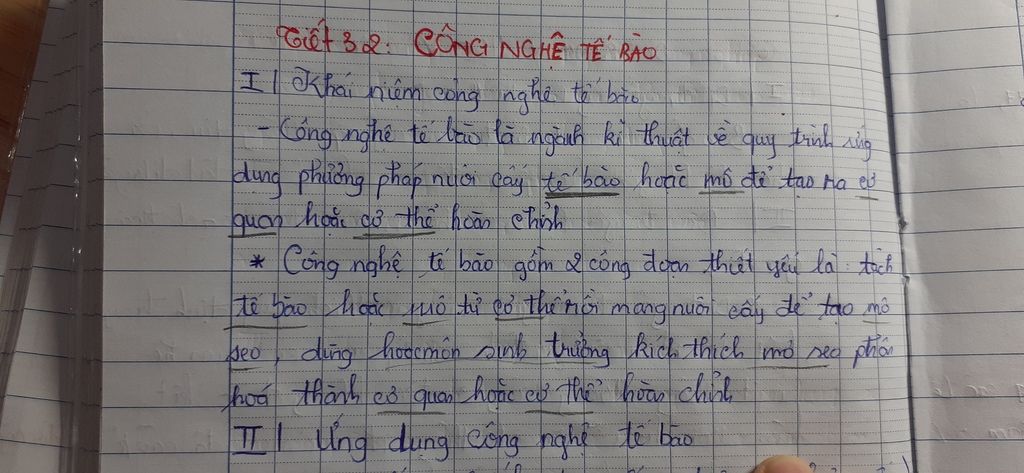 Tiết 32: CÔNG NGHỆ TẾ BÀO
I/ Khái niệm công nghệ tế bào
- Công nghệ tế bào là ngành kĩ thuật về quy trình ứng
dụng phương pháp nuôi cấy tế bào hoặc mô để tạo ra cơ
quan hoặc cơ thể hoàn chỉnh
* Công nghệ tế bào gồm 2 công đoạn thiết yếu là: tách
tế bào hoặc mô từ cơ thể rồi mang nuôi cấy để tạo mô
sẹo, dùng hoocmôn sinh trưởng kích thích mô sẹo phân
hoá thành cơ quan hoặc cơ thể hoàn chỉnh
II/ Ứng dụng công nghệ tế bào